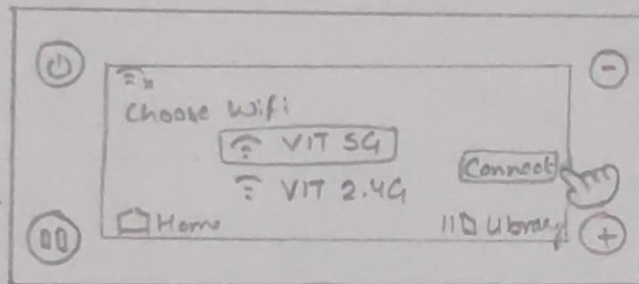 Choose Wifi
VIT 5G
VIT 2.4G
Connect
Home
Library